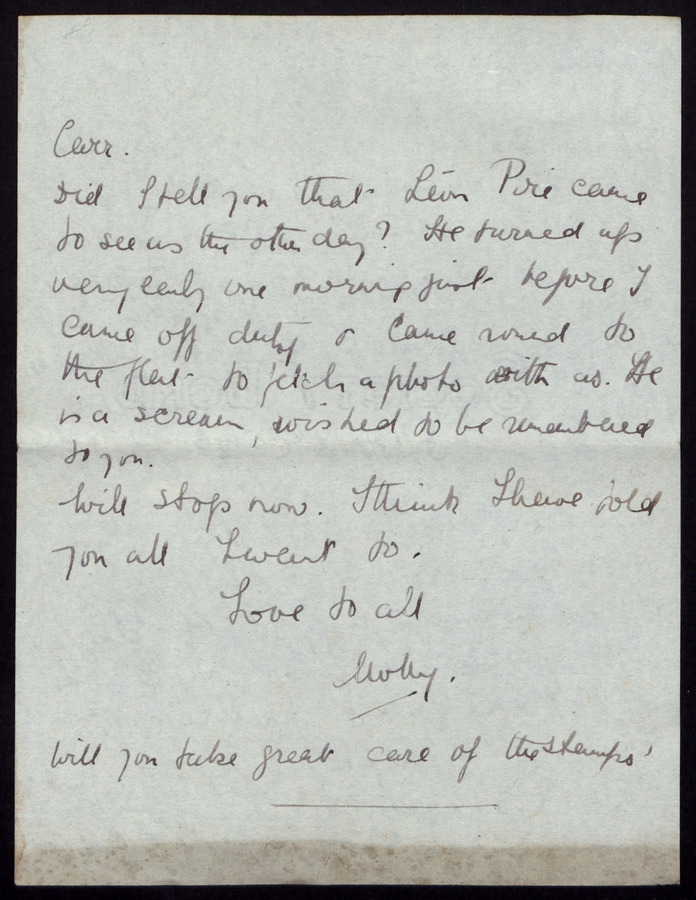 Carr.
Did I tell you that Léon Pirie came
to see us the other day? He turned up
very early one morning just before I
came off duty & came round to
the flat to fetch a photo with us. He
is a scream, wished to be remembered
to you.
Will stop now. I think I have told
you all I want to.
Love to all
Molly.
Will you take great care of the stamps'